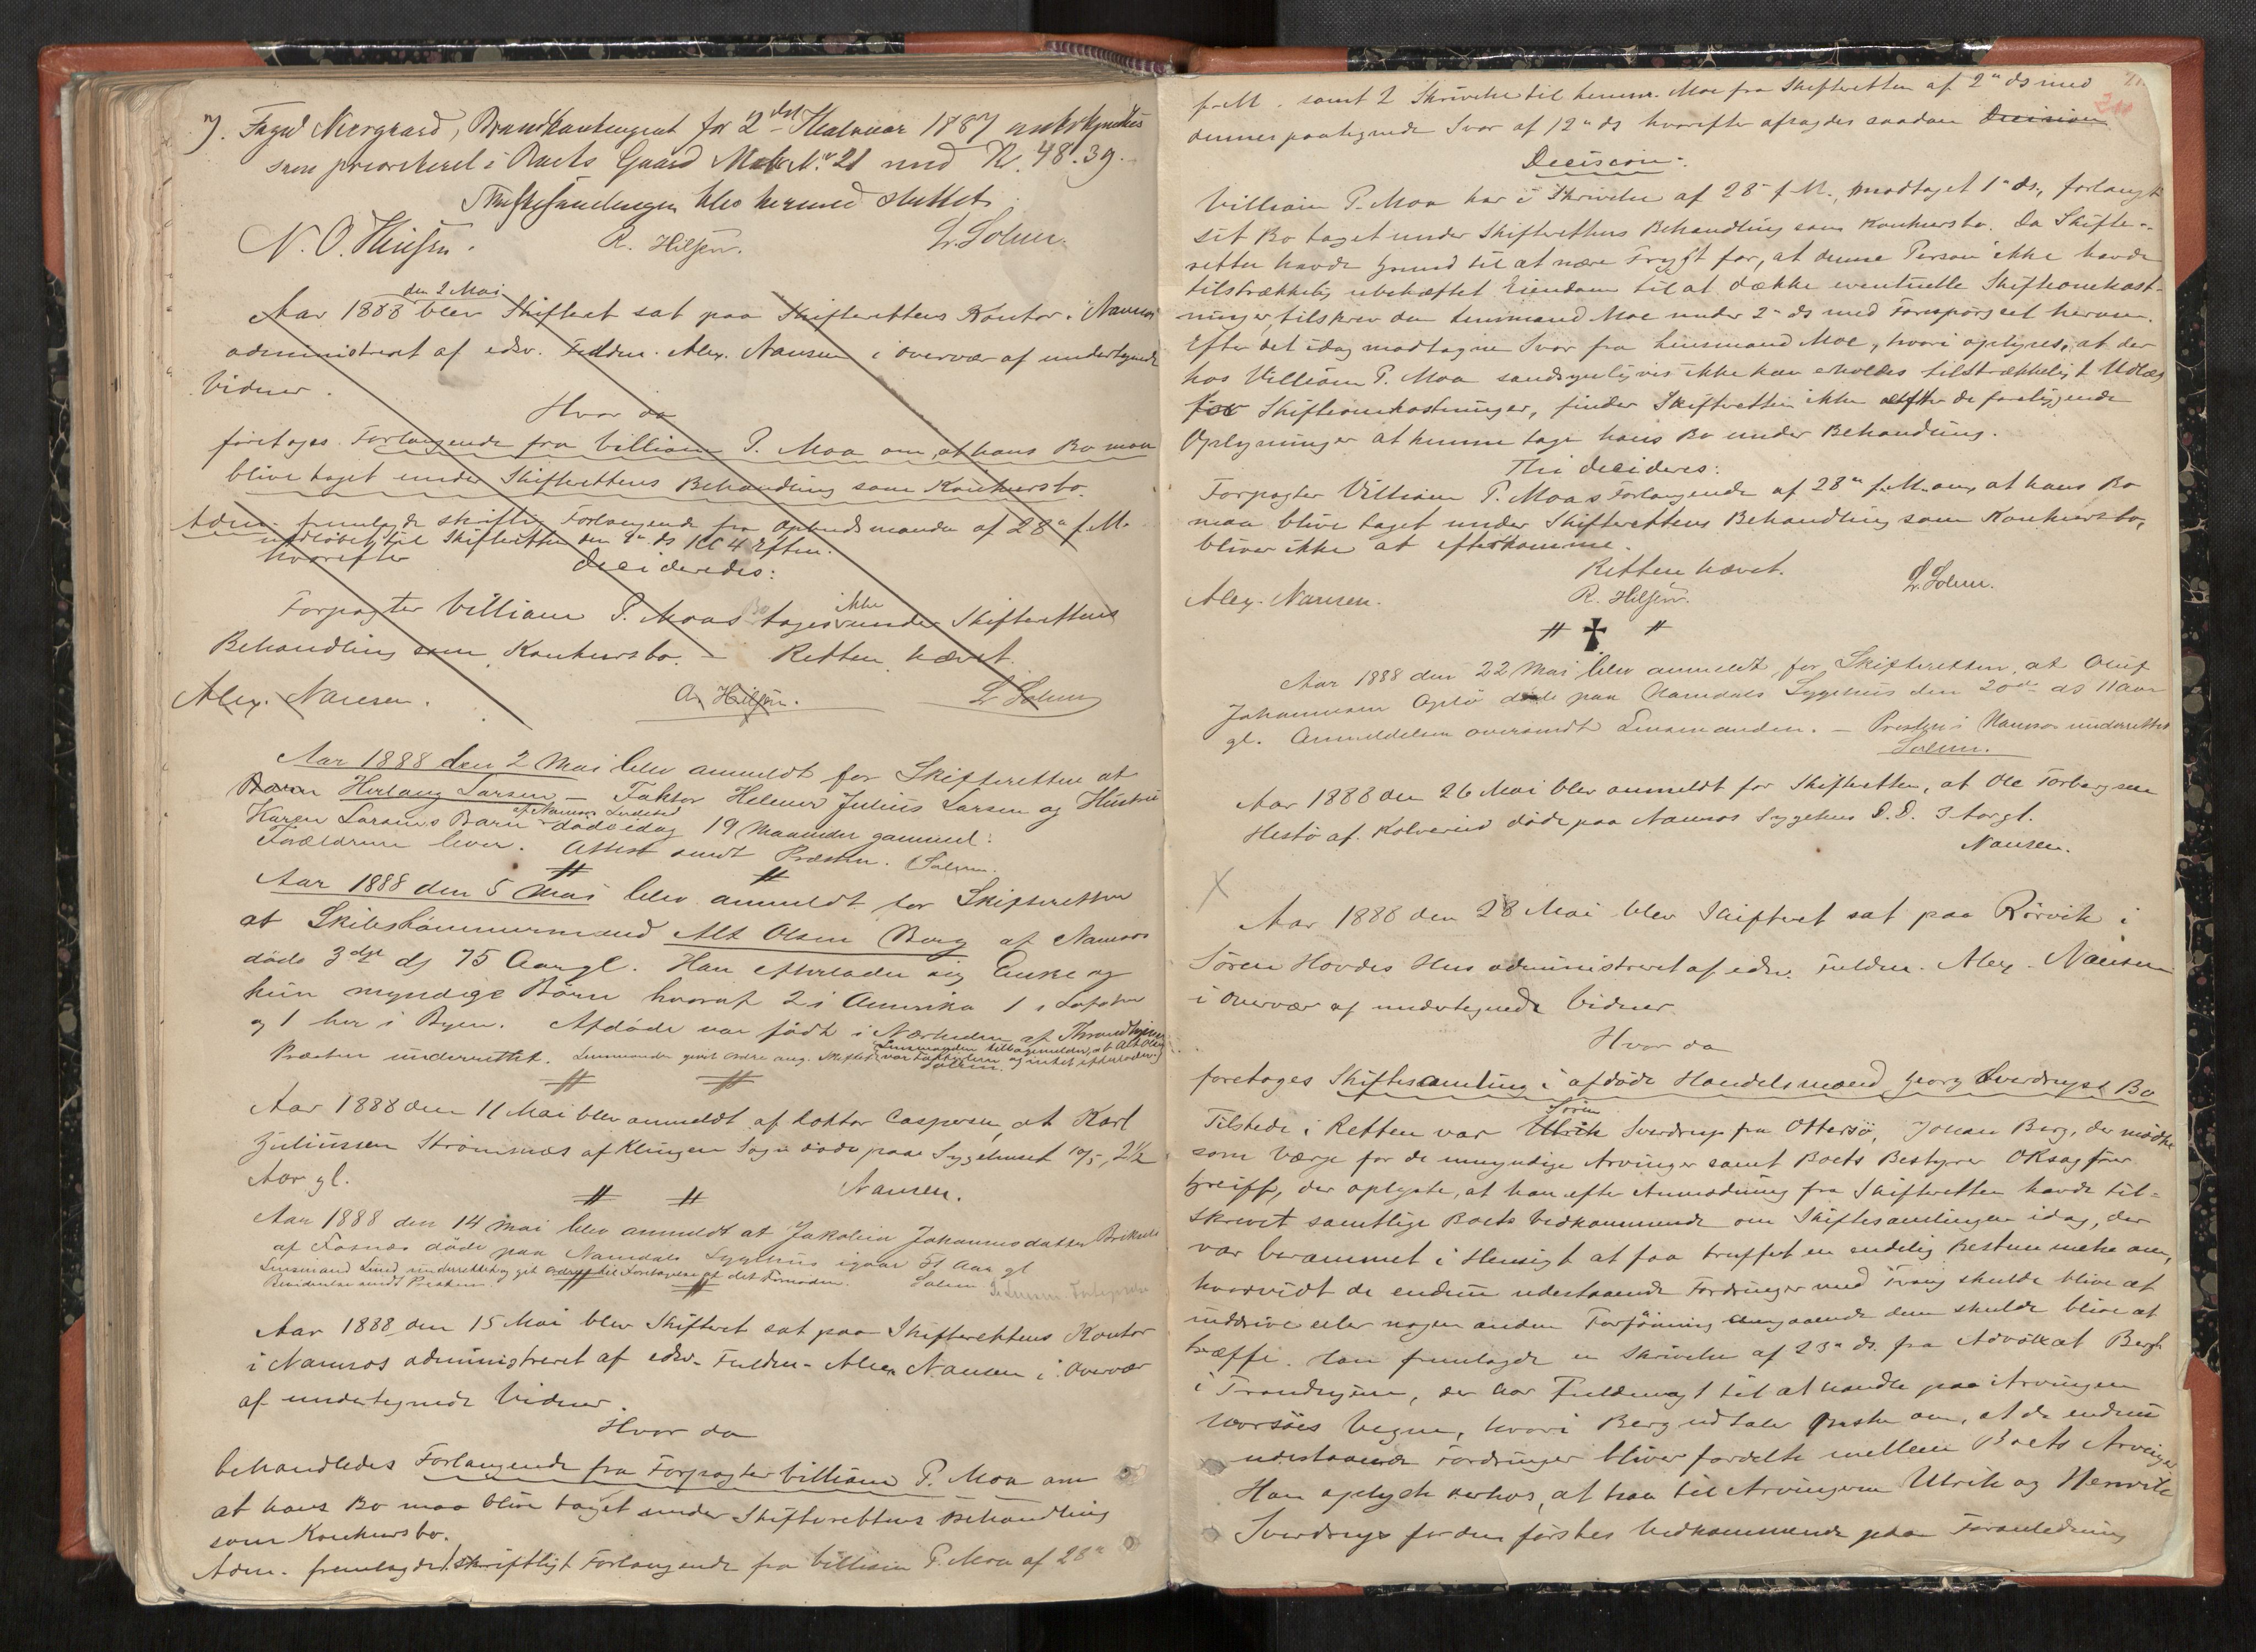 7. Foged Neergaard, Brandkontingent for 2det Halvaar 1887 
som prioriteret i Boets Gaard Matr. N. 21 med Kr. 48.39.
Skiftesamlingen blev hermed sluttet.
N. O. R. Hilsen. L. Solem.
den 2 Mai
Aar 1888 blev Skifteret sat paa Skifterettens Kontor i Namsos
administreret af edsv. Fuldm. Alex. Nansen i Overvær af undertegnede
Vidner.
Hvor da
foretoges Forlangende fra Villiam P. Moa om, at hans Bo maa
blive taget under Skifterettens Behandling som Konkursbo.
Adm. fremlagde skriftlig Forlangende fra Opbudsmanden af 28de f. M.
indløbet til Skifteretten den 1ste ds Kl 4 Efterm.
hvorefter decideredes:
Forpagter Villiam P. Moas Bo tages ikke under Skifterettens
Behandling som Konkursbo. – Retten hævet.
Alex. Nansen. R. Hilsen. L. Solem
Aar 1888 den 2 Mai blev anmeldt for Skifteretten at
Barn Herlaug Larsen – Faktor Helmer Julius Larsen og Hustru
af Namsos Ladested
Karen Larsens Barn døde idag 19 Maaneder gammel:
Forældrene lever. Attest sendt Præsten. Solem.
Aar 1888 den 5 Mai blev anmeldt for Skifteretten
at Skibstømmermand Alt Olsen Berg af Namsos
døde 3die ds 75 Aar gl. Han efterlader sig Enke og
kun myndige Børn hvoraf 2 i Amerika 1 i Lofoten
og 1 her i Byen. Afdøde var født i Nærheden af Throndhjem
Præsten underrettet. Lensmanden givet Ordre ang. Skiftet. Lensmanden tilbagemelder, at Alt Olsen
var og intet efterlader sig
Solem.
Aar 1888 den 11 Mai blev anmeldt af Doktor Caspersen, at Karl
Juliussen Strømsnæs af Klingen Sogn døde paa Sygehuset 10/5, 2½
Aar gl. Nansen.
Aar 1888 den 14 Mai blev anmeldt at Jakobina Johannesdatter
af Fosnæs døde paa Namdals Sygehus igaar 71 Aar gl
Lensmand Lund underrettet og git Ordre til Foretagelse af det Fornødne.
sendt Præsten. Solem
Aar 1888 den 15 Mai blev Skifteret sat paa Skifterettens Kontor
i Namsos administreret af edsv. Fuldm. Alex Nansen i Overvær
af undertegnede Vidner.
Hvor da
behandledes Forlangende fra Forpagter Villiam P. Moa om
at hans Bo maa blive taget under Skifterettens Behandling
som Konkursbo.
Adm. fremlagde 1 skriftligt Forlangende fra Villiam P. Moa af 28de
f. M. samt 2 Skrivelse til Lensm. Moe fra Skifteretten af 2den ds med
dennes paategnede Svar af 12te ds hvorefter afsagdes saadan Decision
Decision:
Villiam P. Moa har i Skrivelse af 28de f. M., modtaget 1ste ds., forlangt
sit Bo taget under Skifterettens Behandling som Konkursbo. Da Skifte-
retten havde Grund til at nære Frygt for, at denne Person ikke havde
tilstrækkelig ubehæftet Eiendom til at dække eventuelle Skifteomkost-
ninger, tilskrev den Lensmand Moe under 2den ds med Forespørgsel herom.
Efter det idag modtagne Svar fra Lensmand Moe, hvori oplyses, at der
hos Villiam P. Moa sandsynligvis ikke kan erholdes tilstrækkeligt Udlæg
for Skifteomkostninger, finder Skifteretten ikke efter de foreliggende
Oplysninger at kunne tage hans Bo under Behandling.
Thi decideres:
Forpagter Villiam P. Moas Forlangende af 28de f. M. om, at hans Bo
maa blive taget under Skifterettens Behandling som Konkursbo,
bliver ikke at efterkomme.
Retten hævet.
Alex. Nansen. R. Hilsen. L. Solem.
Aar 1888 den 22 Mai blev anmeldt for Skifteretten, at Oluf
Johannesen Opló døde paa Namdals Sygehus den 20de ds 11 Aar
gl. Anmeldelsen oversendt Lensmanden. – Præsten i Namsos underrettet
Solem.
Aar 1888 den 26 Mai blev anmeldt for Skifteretten, at Ole Torbergsen
Hestø af Kolvereid døde paa Namsos Sygehus D. D. 3 Aar gl.
Nansen.
Aar 1888 den 28 Mai blev Skifteret sat paa Rørvik i
Søren Hovdes Hus administreret af edsv. Fuldm. Alex. Nansen
i Overvær af undertegnede Vidner.
Hvor da
foretoges Skiftesamling i afdøde Handelsmand Georg Sverdrups Bo
Søren
Tilstede i Retten var Ulrik Sverdrup fra Ottersø, Johan Berg, der mødte
som Værge for de umyndige Arvinger samt Boets Bestyrer O Ksagfører
Greiff, der oplyste, at han efter Anmodning fra Skifteretten havde til-
skrevet samtlige Boets Vedkommende om Skiftesamlingen idag, der
var berammet i Hensigt at faa truffet en endelig Bestemmelse om,
hvorvidt de endnu udestaaende Fordringer med Tvang skulde blive at
inddrive eller nogen anden Forføining angaaende dem skulde blive at
træffe. Han fremlagde en Skrivelse af 23de ds. fra Advokat Bergh
i Trondhjem, der har Fuldmagt til at handle paa Arvingen
Vegne, hvori Berg udtaler Ønske om, at de endnu
udestaaende Fordringer bliver fordelte mellem Boets Arvinger
Han oplyste derhos, at han til Arvingerne Ulrik og Henrik
Sverdrup for den førstes Vedkommende paa Foranledning